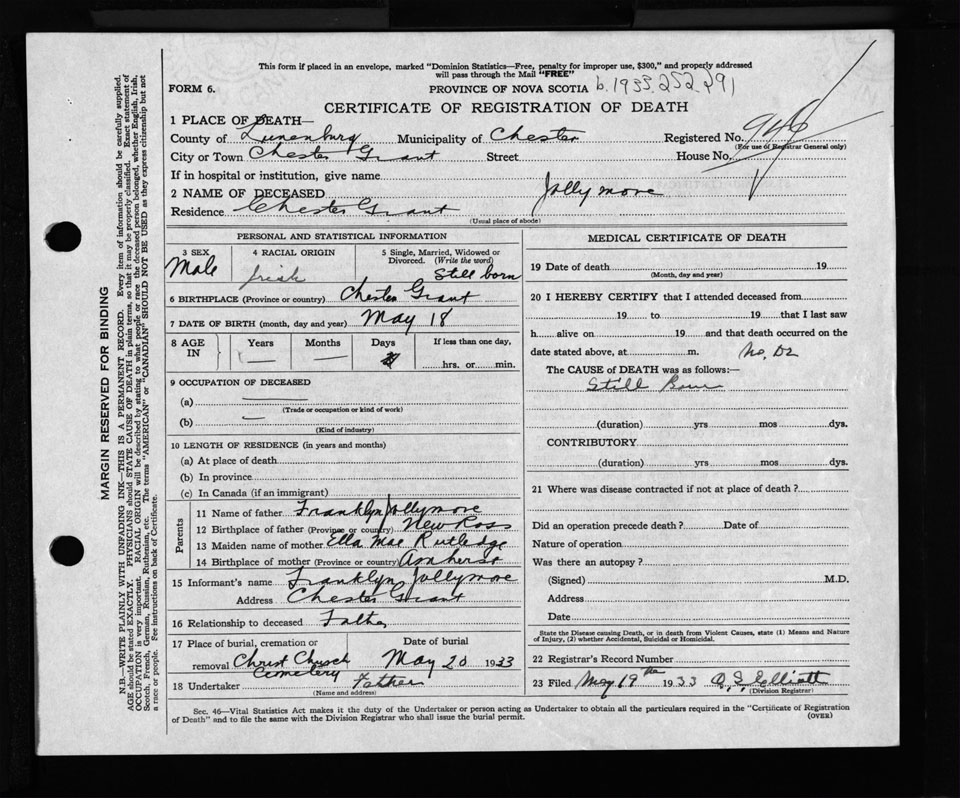 This form if placed in an envelope, marked "Dominion Statistics—Free, penalty for improper use, $300," and properly addressed
will pass through the Mail "FREE"
FORM 6.
PROVINCE OF NOVA SCOTIA b.1933.252.291
CERTIFICATE OF REGISTRATION OF DEATH
1 PLACE OF DEATH—
County of Lunenburg Municipality of Chester Registered No. 946
(For use of Registrar General only)
City or Town Chester Grant Street House No.
If in hospital or institution, give name
2 NAME OF DECEASED Jollymore
Residence Chester Grant
(Usual place of abode)
PERSONAL AND STATISTICAL INFORMATION
3 SEX 4 RACIAL ORIGIN 5 Single, Married, Widowed or
Divorced. (Write the word)
Male Irish Still born
6 BIRTHPLACE (Province or country) Chester Grant
7 DATE OF BIRTH (month, day and year) May 18
8 AGE IN Years Months Days If less than one day,
hrs. or min.
9 OCCUPATION OF DECEASED
(a)
(Trade or occupation or kind of work)
(b)
(Kind of industry)
10 LENGTH OF RESIDENCE (in years and months)
(a) At place of death
(b) In province
(c) In Canada (if an immigrant)
Parents
11 Name of father Franklyn Jollymore
12 Birthplace of father (Province or country) New Ross
13 Maiden name of mother Ella Mae Rutledge
14 Birthplace of mother (Province or country) Amherst
15 Informant's name Franklyn Jollymore
Address Chester Grant
16 Relationship to deceased Father
17 Place of burial, cremation or Date of burial
removal Christ Church May 20 1933
Cemetery
18 Undertaker Father
(Name and address)
MEDICAL CERTIFICATE OF DEATH
19 Date of death 19
(Month, day and year)
20 I HEREBY CERTIFY that I attended deceased from
19 to 19 that I last saw
h alive on 19 and that death occurred on the
date stated above, at m. No, Dr
The CAUSE of DEATH was as follows:—
Still Born
(duration) yrs mos dys.
CONTRIBUTORY
(duration) yrs mos dys.
21 Where was disease contracted if not at place of death ?
Did an operation precede death ? Date of
Nature of operation
Was there an autopsy ?
(Signed) M.D.
Address
Date
State the Disease causing Death, or in death from Violent Causes, state (1) Means and Nature
of Injury, (2) whether Accidental, Suicidal or Homicidal.
22 Registrar's Record Number
23 Filed May 19th 1933 Elliott
(Division Registrar)
Sec. 46—Vital Statistics Act makes it the duty of the Undertaker or person acting as Undertaker to obtain all the particulars required in the "Certificate of Registration
of Death" and to file the same with the Division Registrar who shall issue the burial permit. (OVER)
MARGIN RESERVED FOR BINDING
N.B.—WRITE PLAINLY WITH UNFADING INK—THIS IS A PERMANENT RECORD. Every item of information should be carefully supplied.
AGE should be stated EXACTLY. PHYSICIANS should STATE CAUSE OF DEATH in plain terms, so that it may be properly classified. Exact statement of
OCCUPATION is very important. RACIAL ORIGIN will be described by stating to what people or race the deceased person belonged, whether English, Irish,
Scotch, French, German, Russian, Ruthenian, etc. The terms "AMERICAN" or "CANADIAN" SHOULD NOT BE USED as they express citizenship but not
a race or people. Fee instructions on back of Certificate.